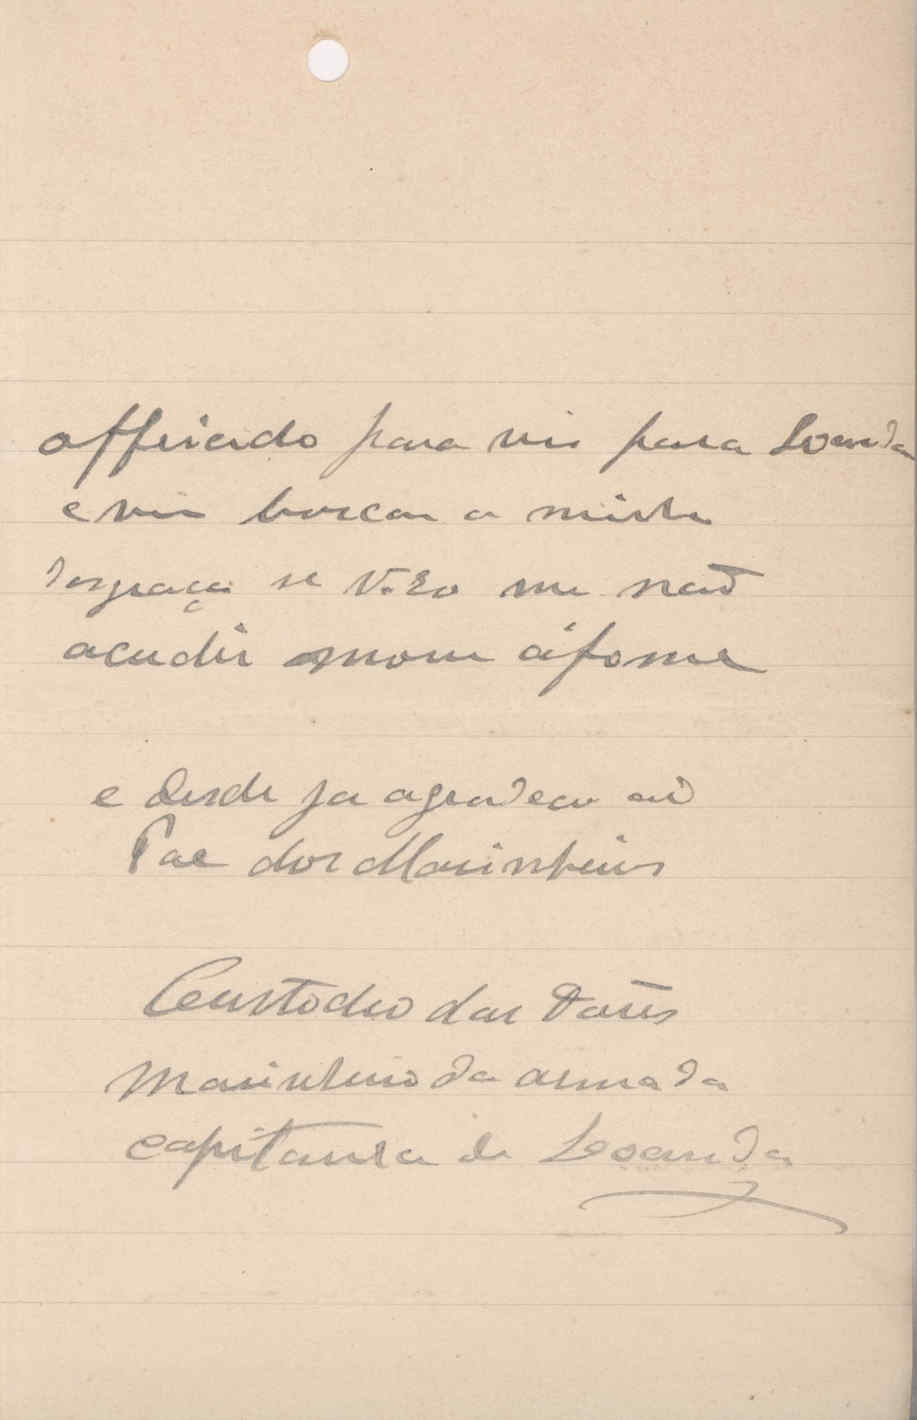 offericido para vir para Loanda
e vir buscar a minha
desgraça se V. Exo me naõ
acudir morru á fome
e desde ja agradecu aõ
Pae dos Marinheiros
Custodio das
Marinheiro da armada
capitania de Loanda